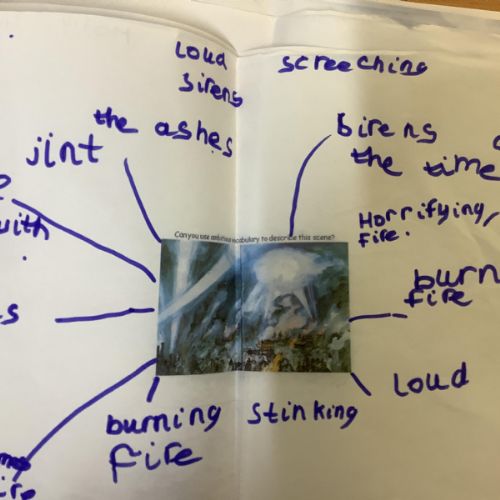 Loud
Sirens
screeching
the ashes
jint
Sirens
the time
with
Horrifying
fire.
Can you use ambitious vocabulary to describe this scene?
burn
fire
Loud
burning
fire
Stinking